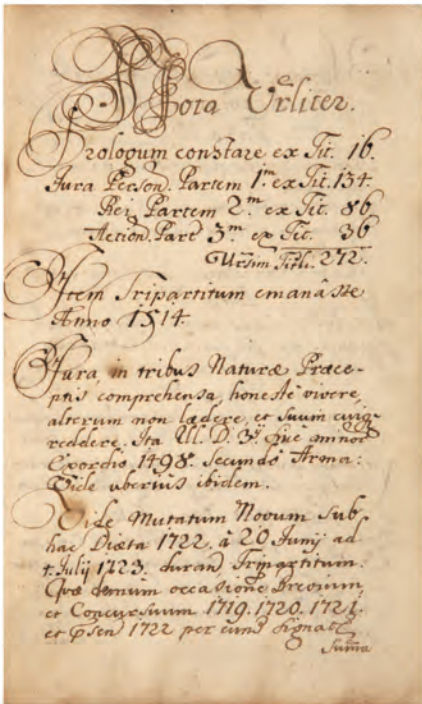 Nota Vrliter.
Prologum constare ex Tit. 16.
Jura Person. Partem 1.m ex Tit. 134.
Rei Partem 2.m ex Tit. 86
Action. Part 3.m ex Tit. 36
Tituli. 272.
Item Tripartitum emanâsse
Anno 1514.
Jura, in tribus Naturæ Præce-
ptis comprehensa, honestè vivere,
alterum non lædere, et suum cuiq
reddere. Ita Ul. D.
Exordio 1498. secundò Arma:
Vide uberius ibidem.
Vide Mutatum Novum sub
hac Diæta 1722. à 20 Junij ad
Julij 1723. durand Tripartitum.
Quæ demum occasione Brevium,
et Concursuum 1719. 1720. 1721.
et 1722 per eund signatæ